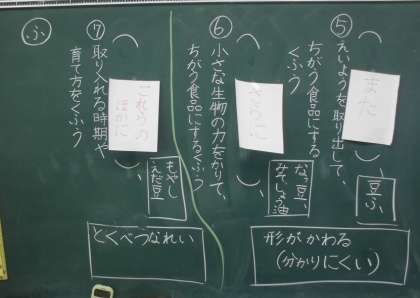 ⑤
（また）、豆ふ、
えいようを取り出して、
ちがう食品にする
くふう
⑥
（さらに）、なっ豆、
みそ、しょう油
小さな生物の力をかりて、
ちがう食品にするくふう
形がかわる
（分かりにくい）
⑦
（これらの
ほかに）、もやし
えだ豆
取り入れる時期や
育て方をくふう
とくべつなれい
ふ